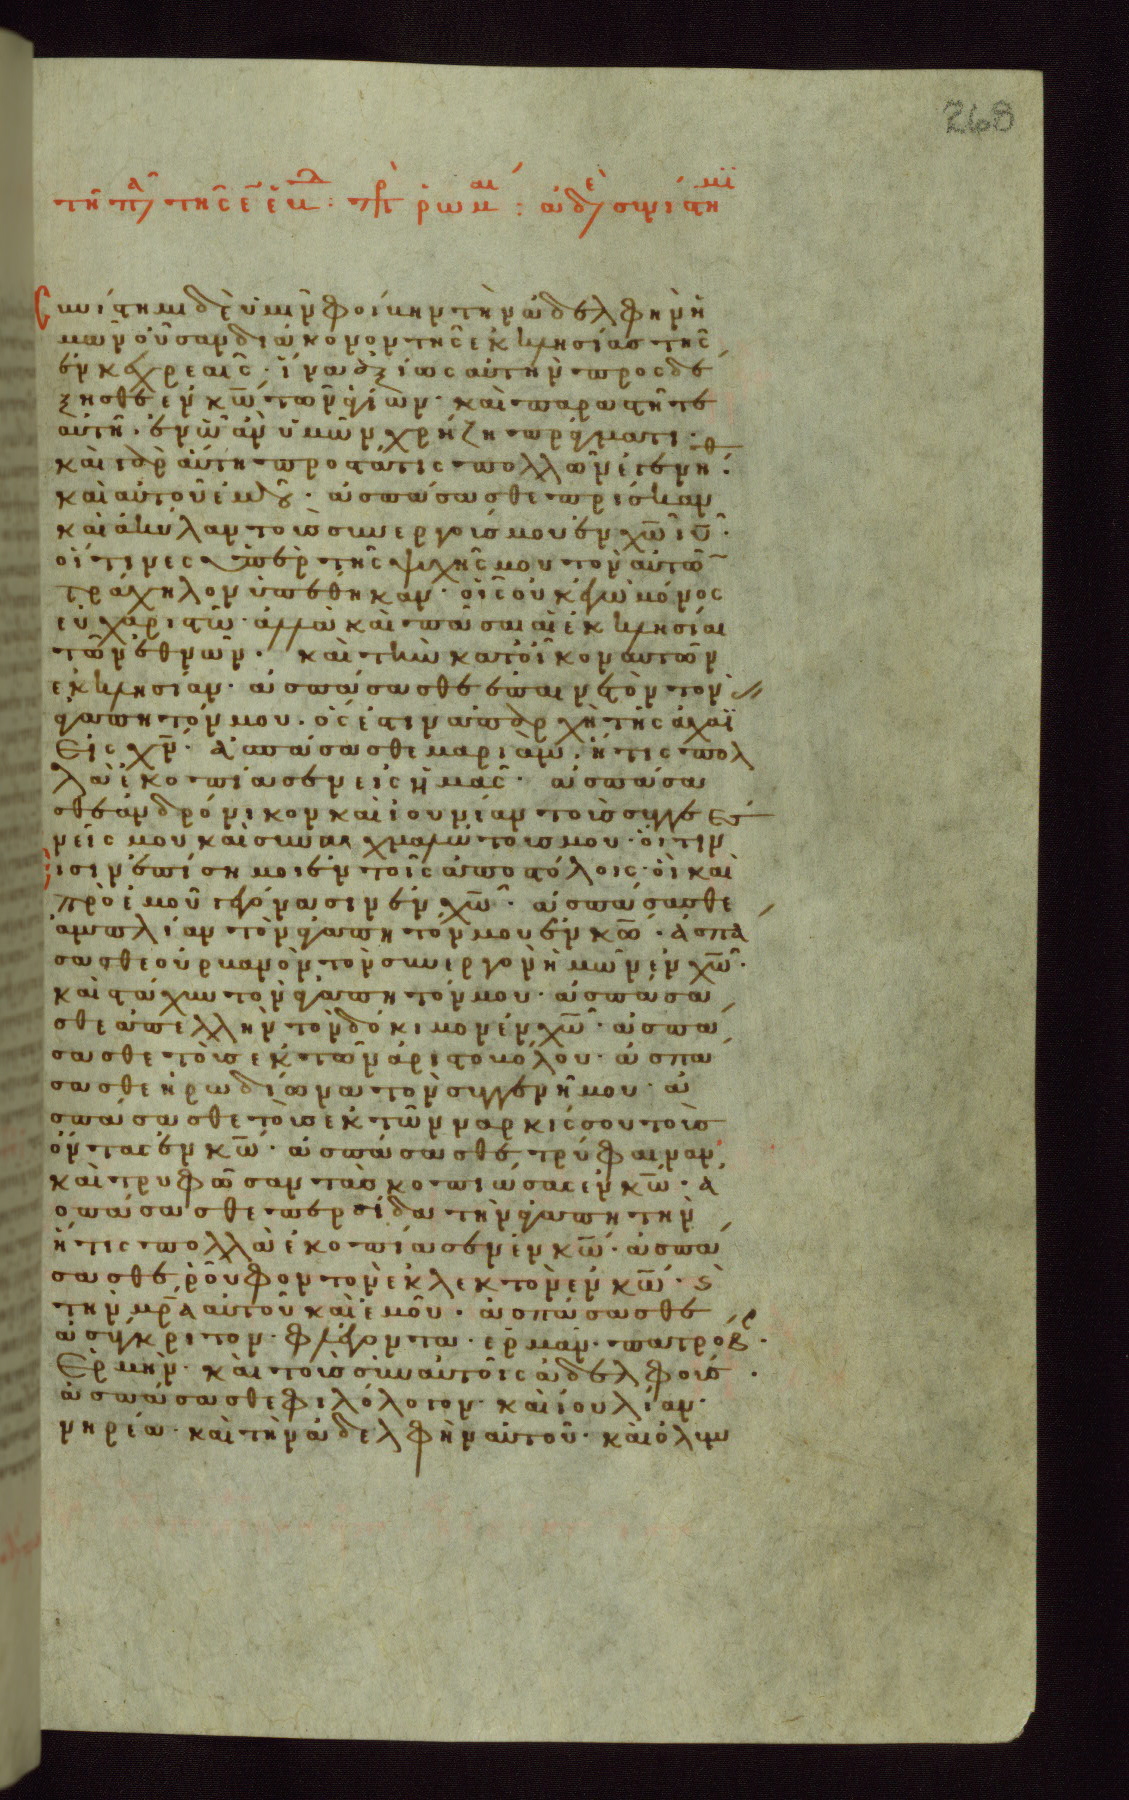 268
τῆ π α τῆς ε ἑ : πρ ρωμαι : ἀδε συνίστημι
Συνίστημι δὲ ὑμῖν φοίκην τὴν ἀδελφὴν ἡ
μῶν οὖσαν διάκονον τῆς ἐκκλησίας τῆς
ἐν κεχρεαῖς · ἵνα ἀξίως αὐτὴν προσδέ
ξησθε ἐν κ̅ω̅ τῶν ἁγίων · καὶ παραστῆτε
αὐτῆ · ἐν ὧ ἂν ὑμῶν χρήζη πράγματι ·
καὶ γὰρ αὕτη προστάτις πολλῶν ἐγενήθ ·
καὶ αὐτοῦ ἐμοῦ · ἀσπάσασθε πρίσκαν
καὶ ἀκύλαν τοὺς συνεργούς μου ἐν χ̅ω̅ ι̅υ̅ ·
οἵτινες ὑπὲρ τῆς ψυχῆς μου τὸν αὐτῶ
τράχηλον ὑπέθηκαν · οἷς οὐκ ἐγὼ μόνος
εὐχαριστῶ · ἀλλὰ καὶ πᾶσαι αἱ ἐκκλησίαι
τῶν ἐθνῶν · καὶ τὴν κατοῖκον αὐτῶν
ἐκκλησίαν · ἀσπάσασθε ἐπαινετὸν τὸν ἀ
γαπητόν μου · ὅς ἐστιν ἀπαρχὴ τῆς ἀχαΐ
εἰς χ̅ν̅ · Ἀσπάσασθε μαριάμ · ἥτις πολ
λὰ ἐκοπίασεν εἰς ἡμᾶς · ἀσπάσα
σθε ἀνδρόνικον καὶ ἰουνίαν τοὺς συγγε
νεῖς μου καὶ συναιχμαλώτους μου · οἵτινες
εἰσιν ἐπίσημοι ἐν τοῖς ἀποστόλοις · οἳ καὶ
πρὸ ἐμοῦ γέγονασιν ἐν χ̅ω̅ · ἀσπάσασθε
ἀμπλίαν τὸν ἀγαπητόν μου ἐν κ̅ω̅ · ἀσπά
σασθε οὐρμανὸν τὸν συνεργὸν ἡμῶν ἐν χ̅ω̅ ·
καὶ στάχυν τὸν ἀγαπητόν μου · ἀσπάσα
σθε ἀπελλὴν τὸν δόκιμον ἐν χ̅ω̅ · ἀσπά
σασθε τοὺς ἐκ τῶν ἀριστοκόλου · ἀσπά
σασθε ἡρωδίωνα τὸν συγγενῆ μου · ἀ
σπάσασθε τοὺς ἐκ τῶν ναρκίσσου τοὺς
ὄντας ἐν κ̅ω̅ · ἀσπάσασθε τρύφαιναν
καὶ τρυφῶσαν τὰς κοπιώσας ἐν κ̅ω̅ · ἀ
σπάσασθε περσίδα τὴν ἀγαπητὴν
ἥτις πολλὰ ἐκοπίασεν ἐν κ̅ω̅ · ἀσπά
σασθε ῥοῦφον τὸν ἐκλεκτὸν ἐν κ̅ω̅ · καὶ
τὴν μ̅ρ̅α αὐτοῦ καὶ ἐμοῦ · ἀσπάσασθε
ἀσύγκριτον · φλέγοντα · ἑρμᾶν · πατρόβ ·
Ἑρμὴν · καὶ τοὺς σὺν αὐτοῖς ἀδελφούς ·
ἀσπάσασθε φιλόλογον · καὶ ἰουλίαν ·
νηρέα · καὶ τὴν ἀδελφὴν αὐτοῦ · καὶ ὀλυμ